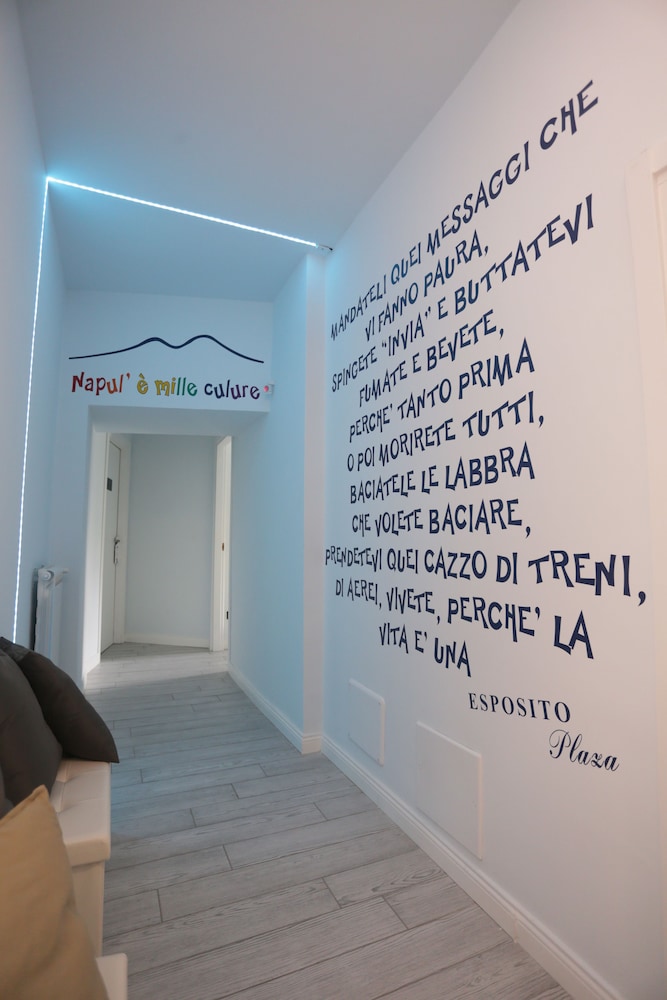 Napul' è mille culure'
MANDATELI QUEI MESSAGGI CHE
VI FANNO PAURA,
SPINGETE "INVIA" E BUTTATEVI
FUMATE E BEVETE,
PERCHE' TANTO PRIMA
O POI MORIRETE TUTTI,
BACIATELE LE LABBRA
CHE VOLETE BACIARE,
PRENDETEVI QUEI CAZZO DI TRENI,
DI AEREI, VIVETE, PERCHE' LA
VITA E' UNA
ESPOSITO
Plaza